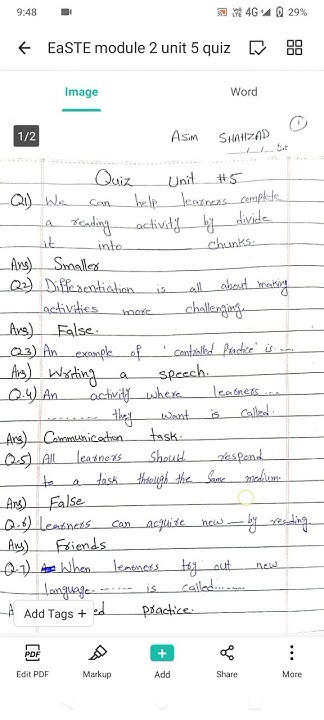 9:48 4G 29%
EaSTE module 2 unit 5 quiz
Image Word
1/2
1
Asim SHAHZAD
Quiz Unit #5
Q1) We can help learners complete
a reading activity by divide
it into chunks.
Ans) Smaller
Q2) Differentiation is all about making
activities more challenging.
Ans) False.
Q.3) An example of 'controlled practice' is....
Ans) Writing a speech.
Q.4) An activity where learners ...
......... they want is called.
Ans) Communication task.
Q.5) All learners should respond
to a task through the same medium.
Ans) False
Q.6) Learners can acquire new — by reading.
Ans) Friends
Q.7) When learners try out new
language ...... is called......
A ed practice.
Add Tags +
PDF
Edit PDF Markup Add Share More